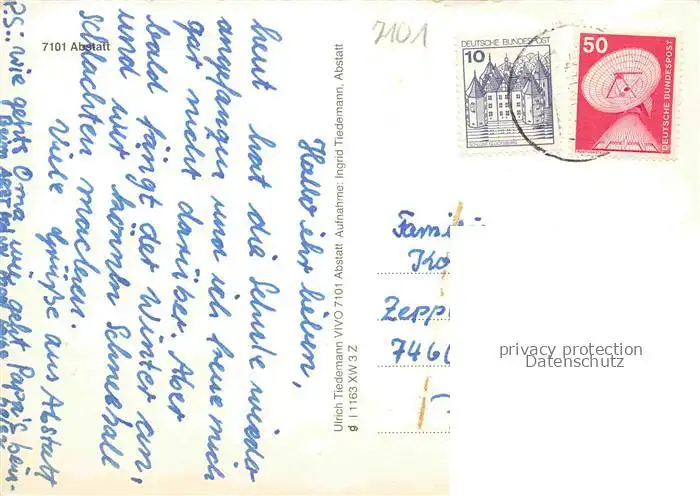 7101 Abstatt
7101
Hallo ihr lieben,
heut hat die Schule wieder
angefangen und ich freue mich
gar nicht darüber. Aber
bald fängt der Winter an,
und wir können Schneeball
schlachten machen.
Viele Grüße aus Abstatt
PS.: wie gehts Oma wie geht Papa's bein
Ulrich Tiedemann VIVO 7101 Abstatt Aufnahme: Ingrid Tiedemann, Abstatt
g I 1163 XW 3 Z
DEUTSCHE BUNDESPOST
10
SCHLOSS GLÜCKSBURG
50
DEUTSCHE BUNDESPOST
Fami
Ko
Zepp
746
privacy protection
Datenschutz